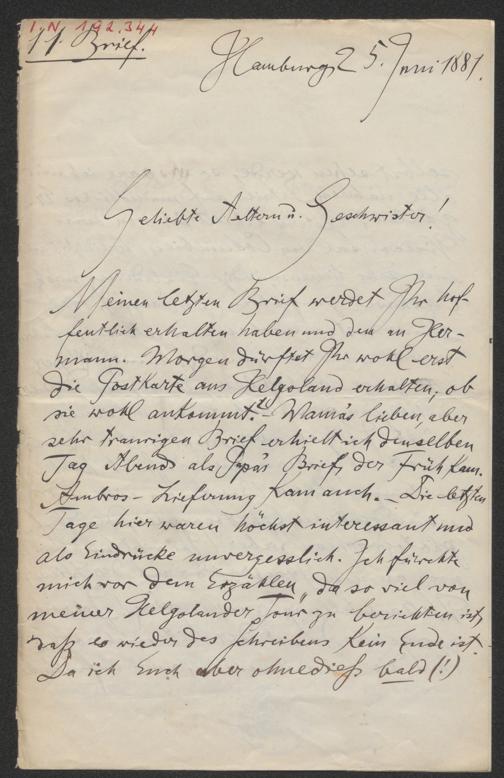 I. N. 192.344
11. Brief.
Hamburg 25. Juni 1881.
Geliebte Aeltern u. Geschwister!
Meinen letzten Brief werdet Ihr hof-
fentlich erhalten haben und den an Her-
mann. Morgen dürftet Ihr wohl erst
die Postkarte aus Helgoland erhalten, ob
sie wohl ankommt? – Mama's lieben, aber
sehr traurigen Brief erhielt ich denselben
Tag Abends als Papa's Brief, der Früh kam.
Ambros-Lieferung kam auch. – Die letzten
Tage hier waren höchst interessant und
als Eindrücke unvergesslich. Ich fürchte
mich vor dem Erzählen, da so viel von
meiner Helgolander Tour zu berichten ist,
daß es wieder des Schreibens kein Ende ist.
Da ich Euch aber ohnedieß bald (!)